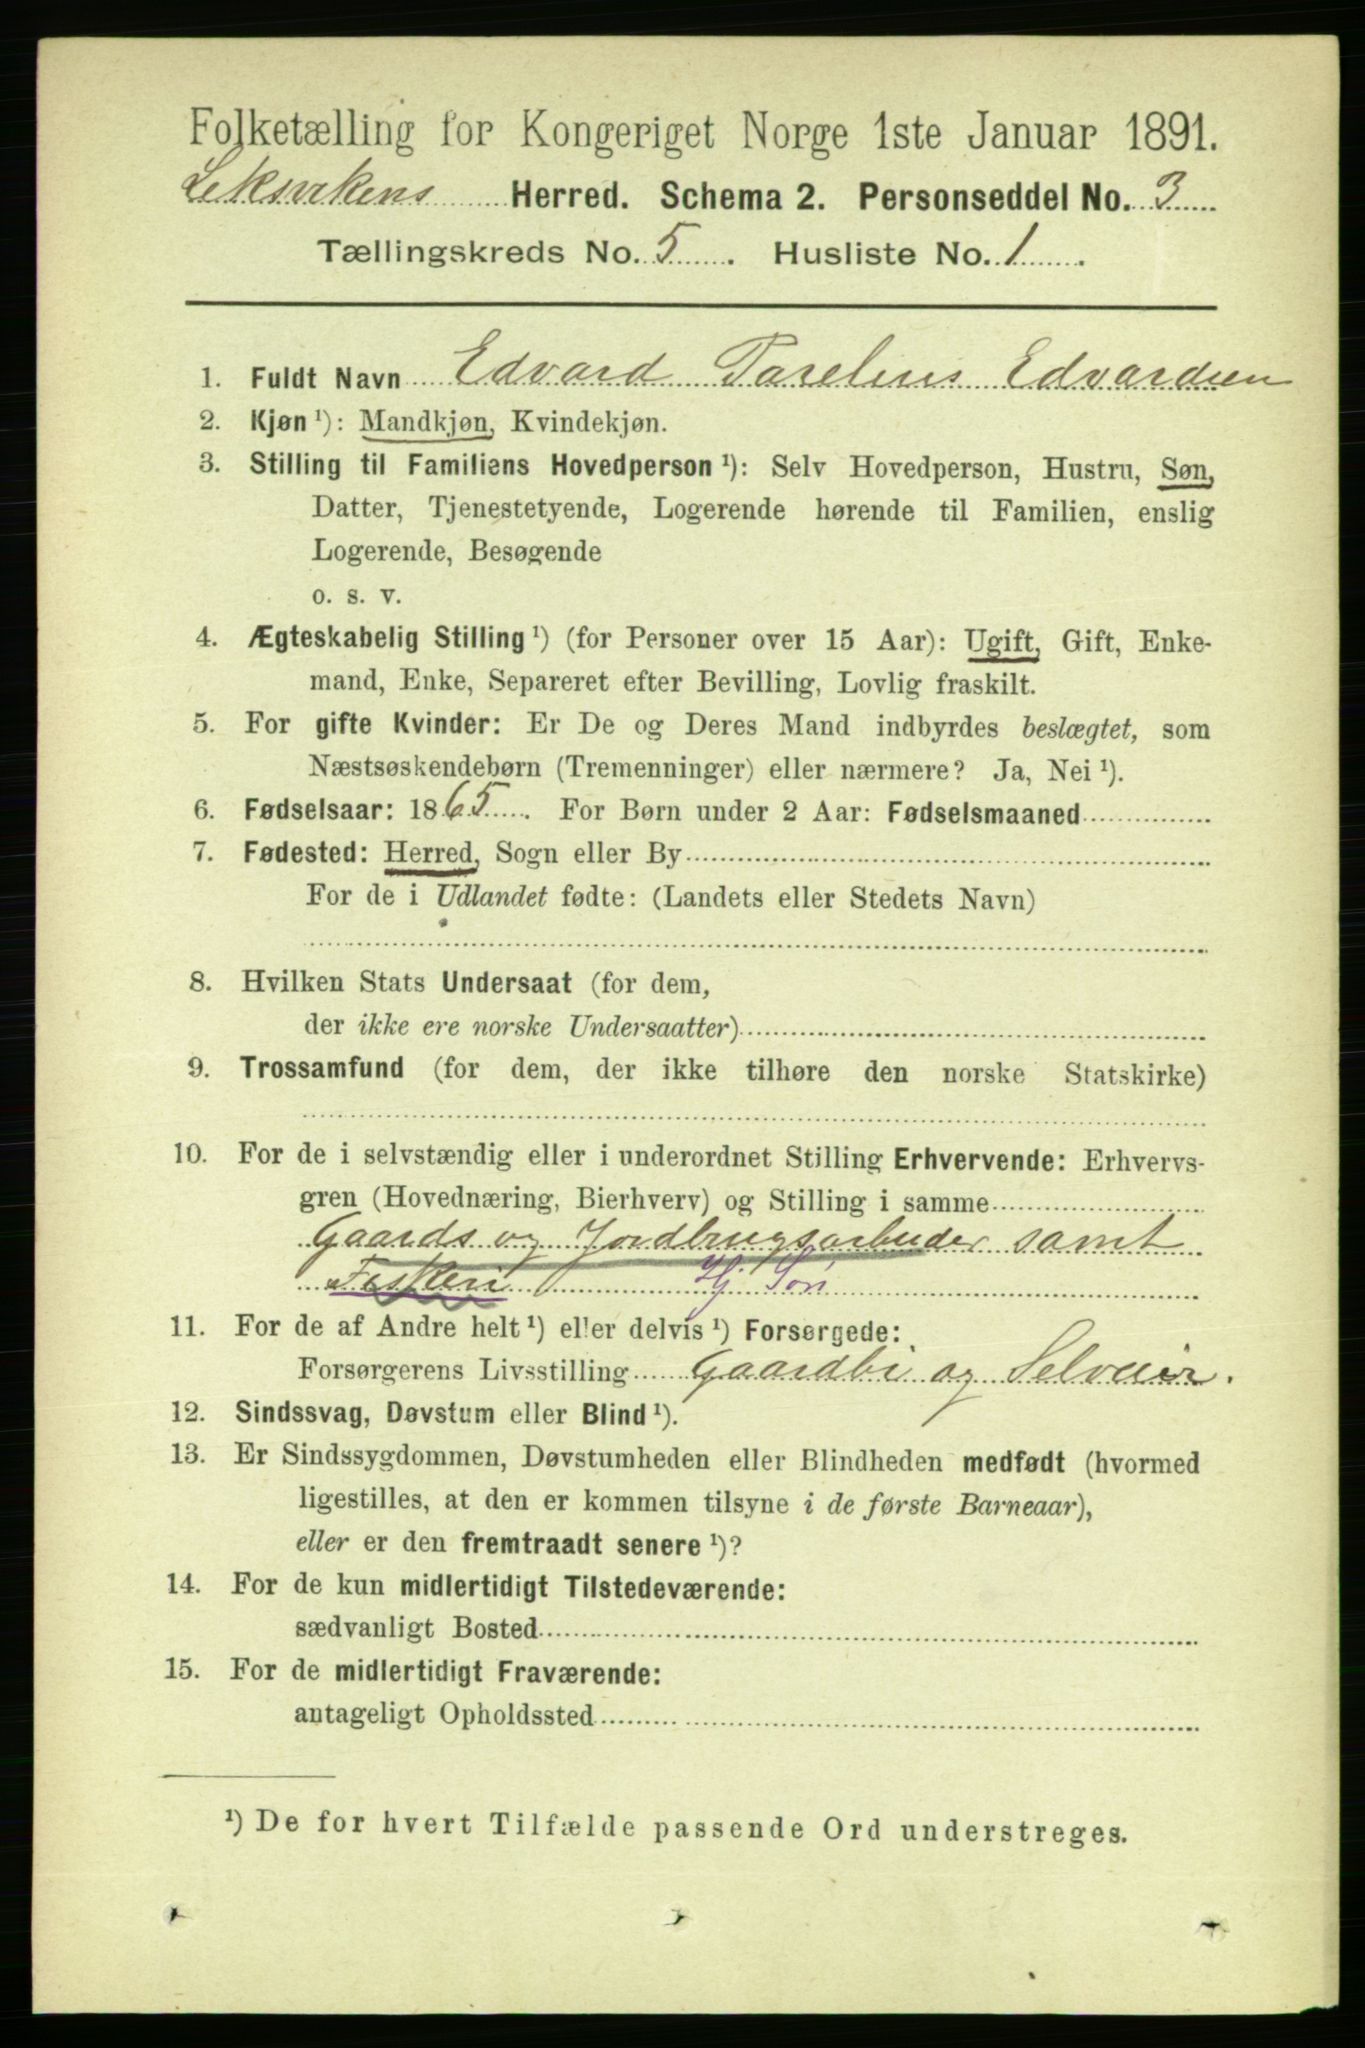 Folketælling for Kongeriget Norge 1ste Januar 1891.
Leksvikens Herred. Schema 2. Personseddel No. 3
Tællingskreds No. 5. Husliste No. 1.
1. Fuldt Navn Edvard Parelius Edvardsen
2. Kjøn ¹): Mandkjøn, Kvindekjøn.
3. Stilling til Familiens Hovedperson ¹): Selv Hovedperson, Hustru, Søn,
Datter, Tjenestetyende, Logerende hørende til Familien, enslig
Logerende, Besøgende
o. s. v.
4. Ægteskabelig Stilling ¹) (for Personer over 15 Aar): Ugift, Gift, Enke-
mand, Enke, Separeret efter Bevilling, Lovlig fraskilt.
5. For gifte Kvinder: Er De og Deres Mand indbyrdes beslægtet, som
Næstsøskendebørn (Tremenninger) eller nærmere? Ja, Nei ¹).
6. Fødselsaar: 1865. For Børn under 2 Aar: Fødselsmaaned
7. Fødested: Herred, Sogn eller By
For de i Udlandet fødte: (Landets eller Stedets Navn)
8. Hvilken Stats Undersaat (for dem,
der ikke ere norske Undersaatter)
9. Trossamfund (for dem, der ikke tilhøre den norske Statskirke)
10. For de i selvstændig eller i underordnet Stilling Erhvervende: Erhvervs-
gren (Hovednæring, Bierhverv) og Stilling i samme
Gaards og Jordbrugsarbeider samt
Fiskeri Hj Søn
11. For de af Andre helt ¹) eller delvis ¹) Forsørgede:
Forsørgerens Livsstilling Gaardbr og Selveier.
12. Sindssvag, Døvstum eller Blind ¹).
13. Er Sindssygdommen, Døvstumheden eller Blindheden medfødt (hvormed
ligestilles, at den er kommen tilsyne i de første Barneaar),
eller er den fremtraadt senere ¹)?
14. For de kun midlertidigt Tilstedeværende:
sædvanligt Bosted
15. For de midlertidigt Fraværende:
antageligt Opholdssted
¹) De for hvert Tilfælde passende Ord understreges.